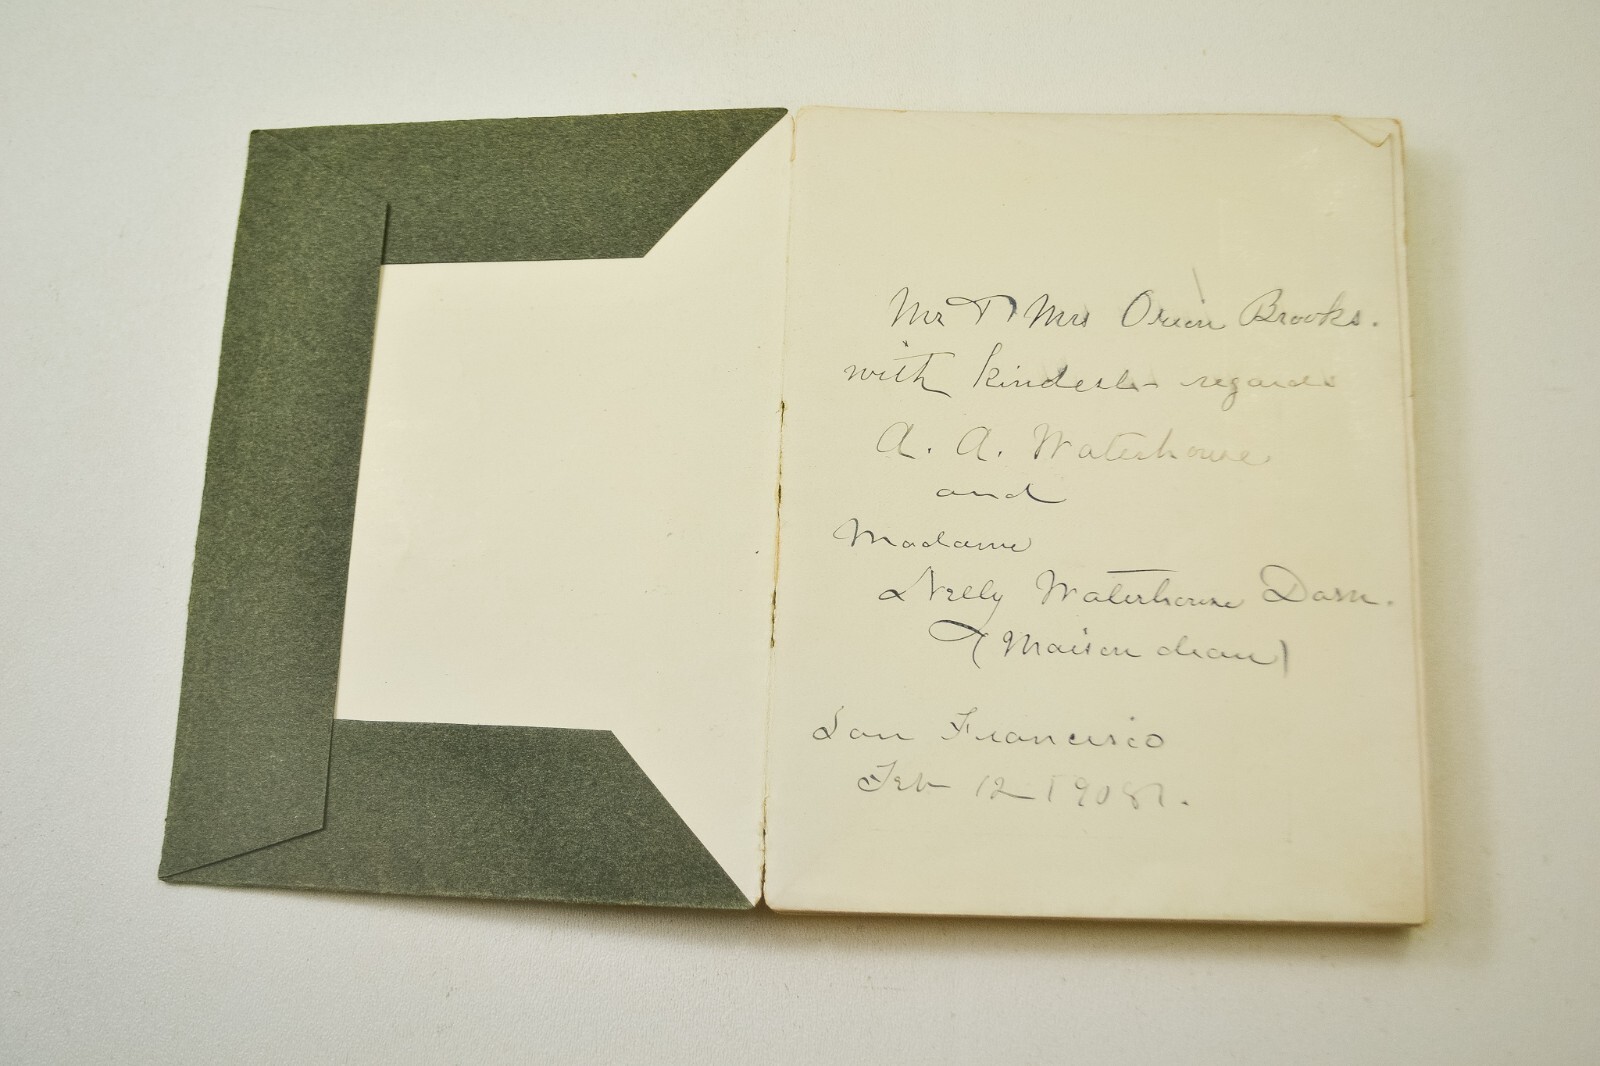 Mr & Mrs Orion Brooks.
with kindest regards
A. A. Waterhouse
and
Madame
Nelly Waterhouse
(Maison
San Francisco
Feb 12